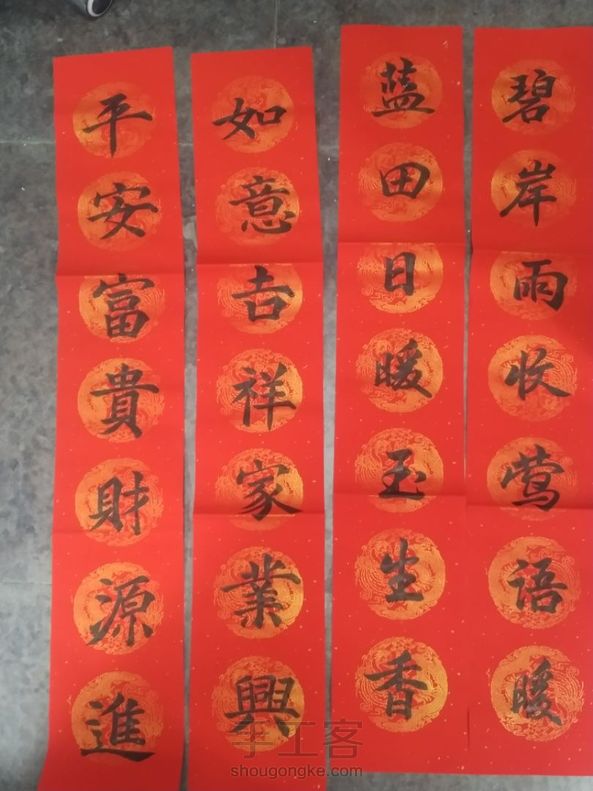 碧岸雨收莺语暖
蓝田日暖玉生香
如意吉祥家業興
平安富貴財源進
手工客
shougongke.com